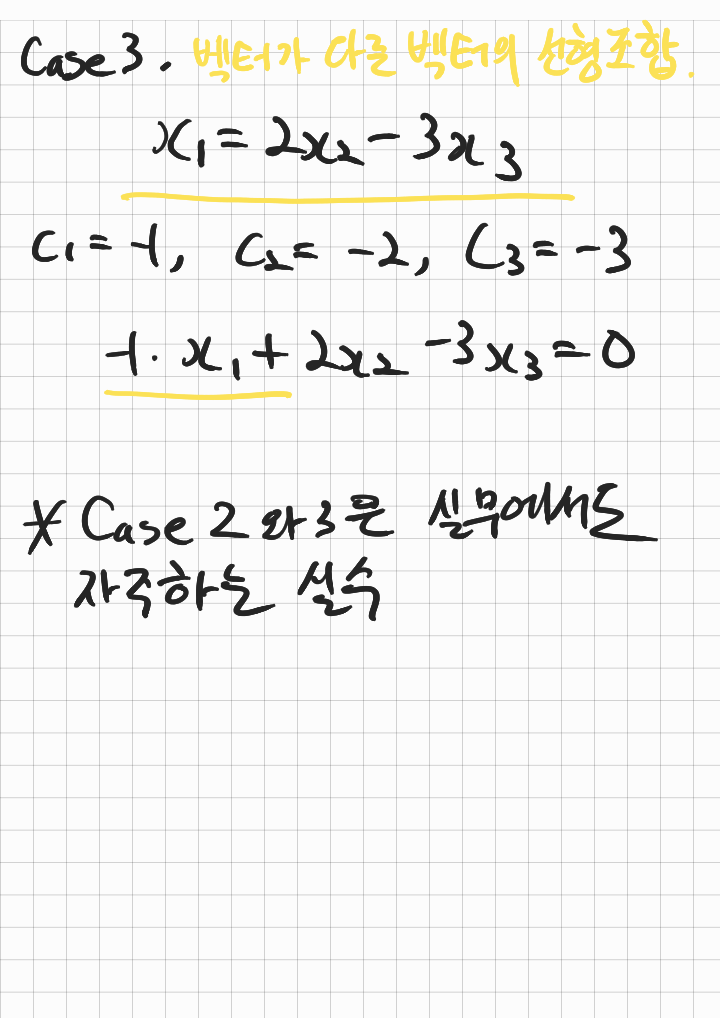 Case 3. 벡터가 다른 벡터의 선형조합.
x₁ = 2x₂ - 3x₃
C₁ = -1, C₂ = -2, C₃ = -3
-1 · x₁ + 2x₂ - 3x₃ = 0
* Case 2와 3은 실무에서도
자주하는 실수